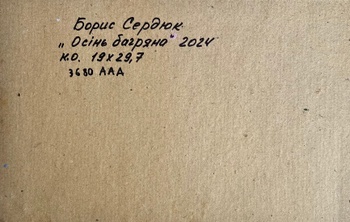 Борис Сердюк
„Осінь багряна" 2024
к.о. 19х29,7
3680 ААД